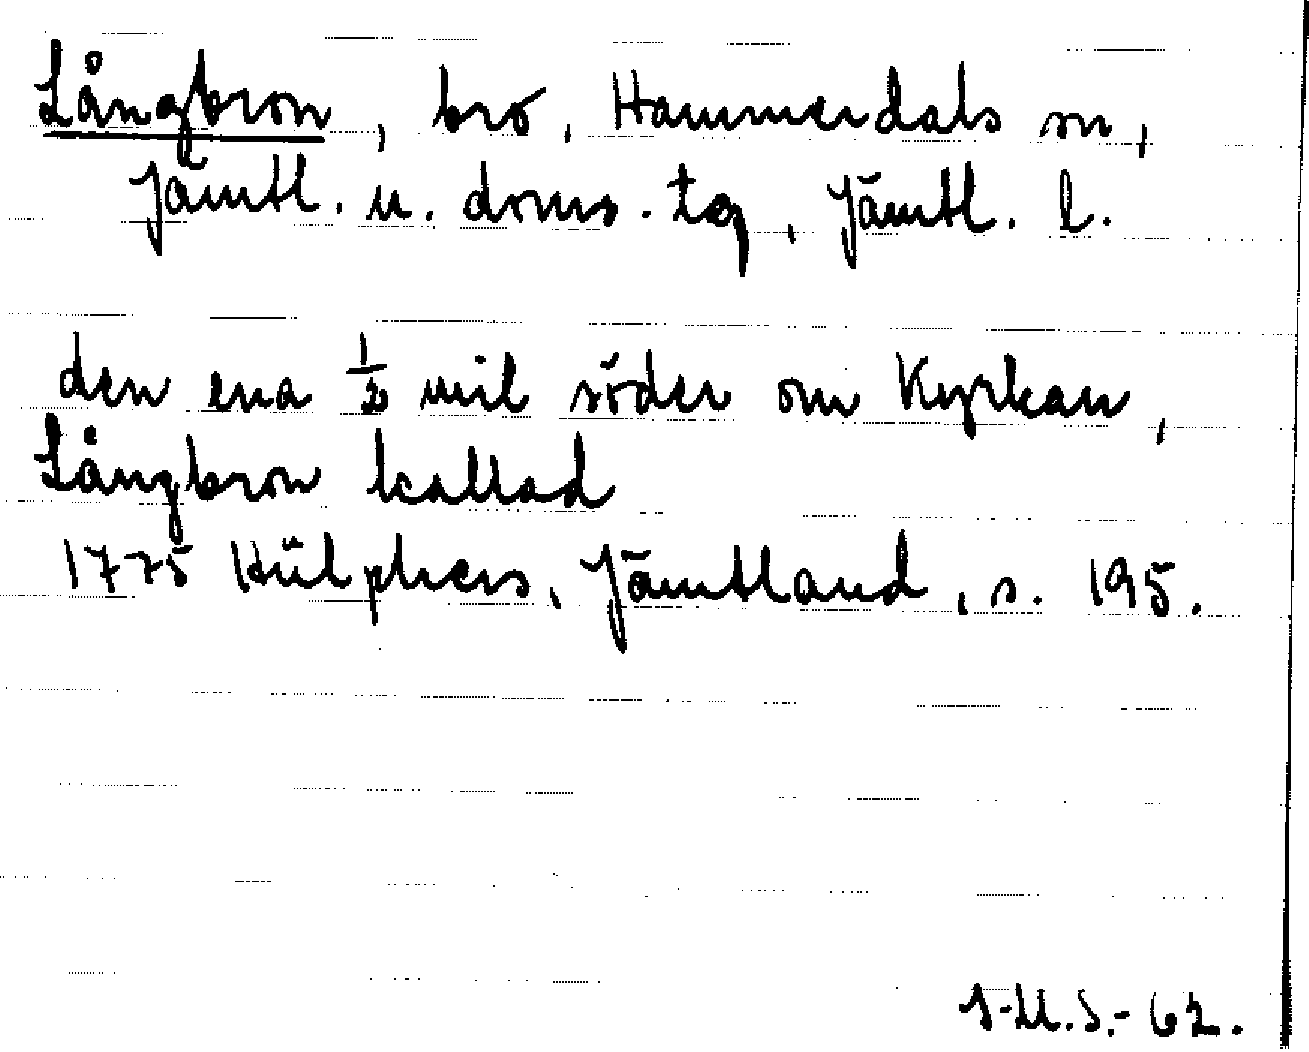 Långbron, bro, Hammerdals sn,
Jämtl. n. doms. tg, Jämtl. l.
den ena 1/2 mil söder om Kyrkan,
Långbron kallad
1775 Hülphers, Jämtland, s. 195.
62.